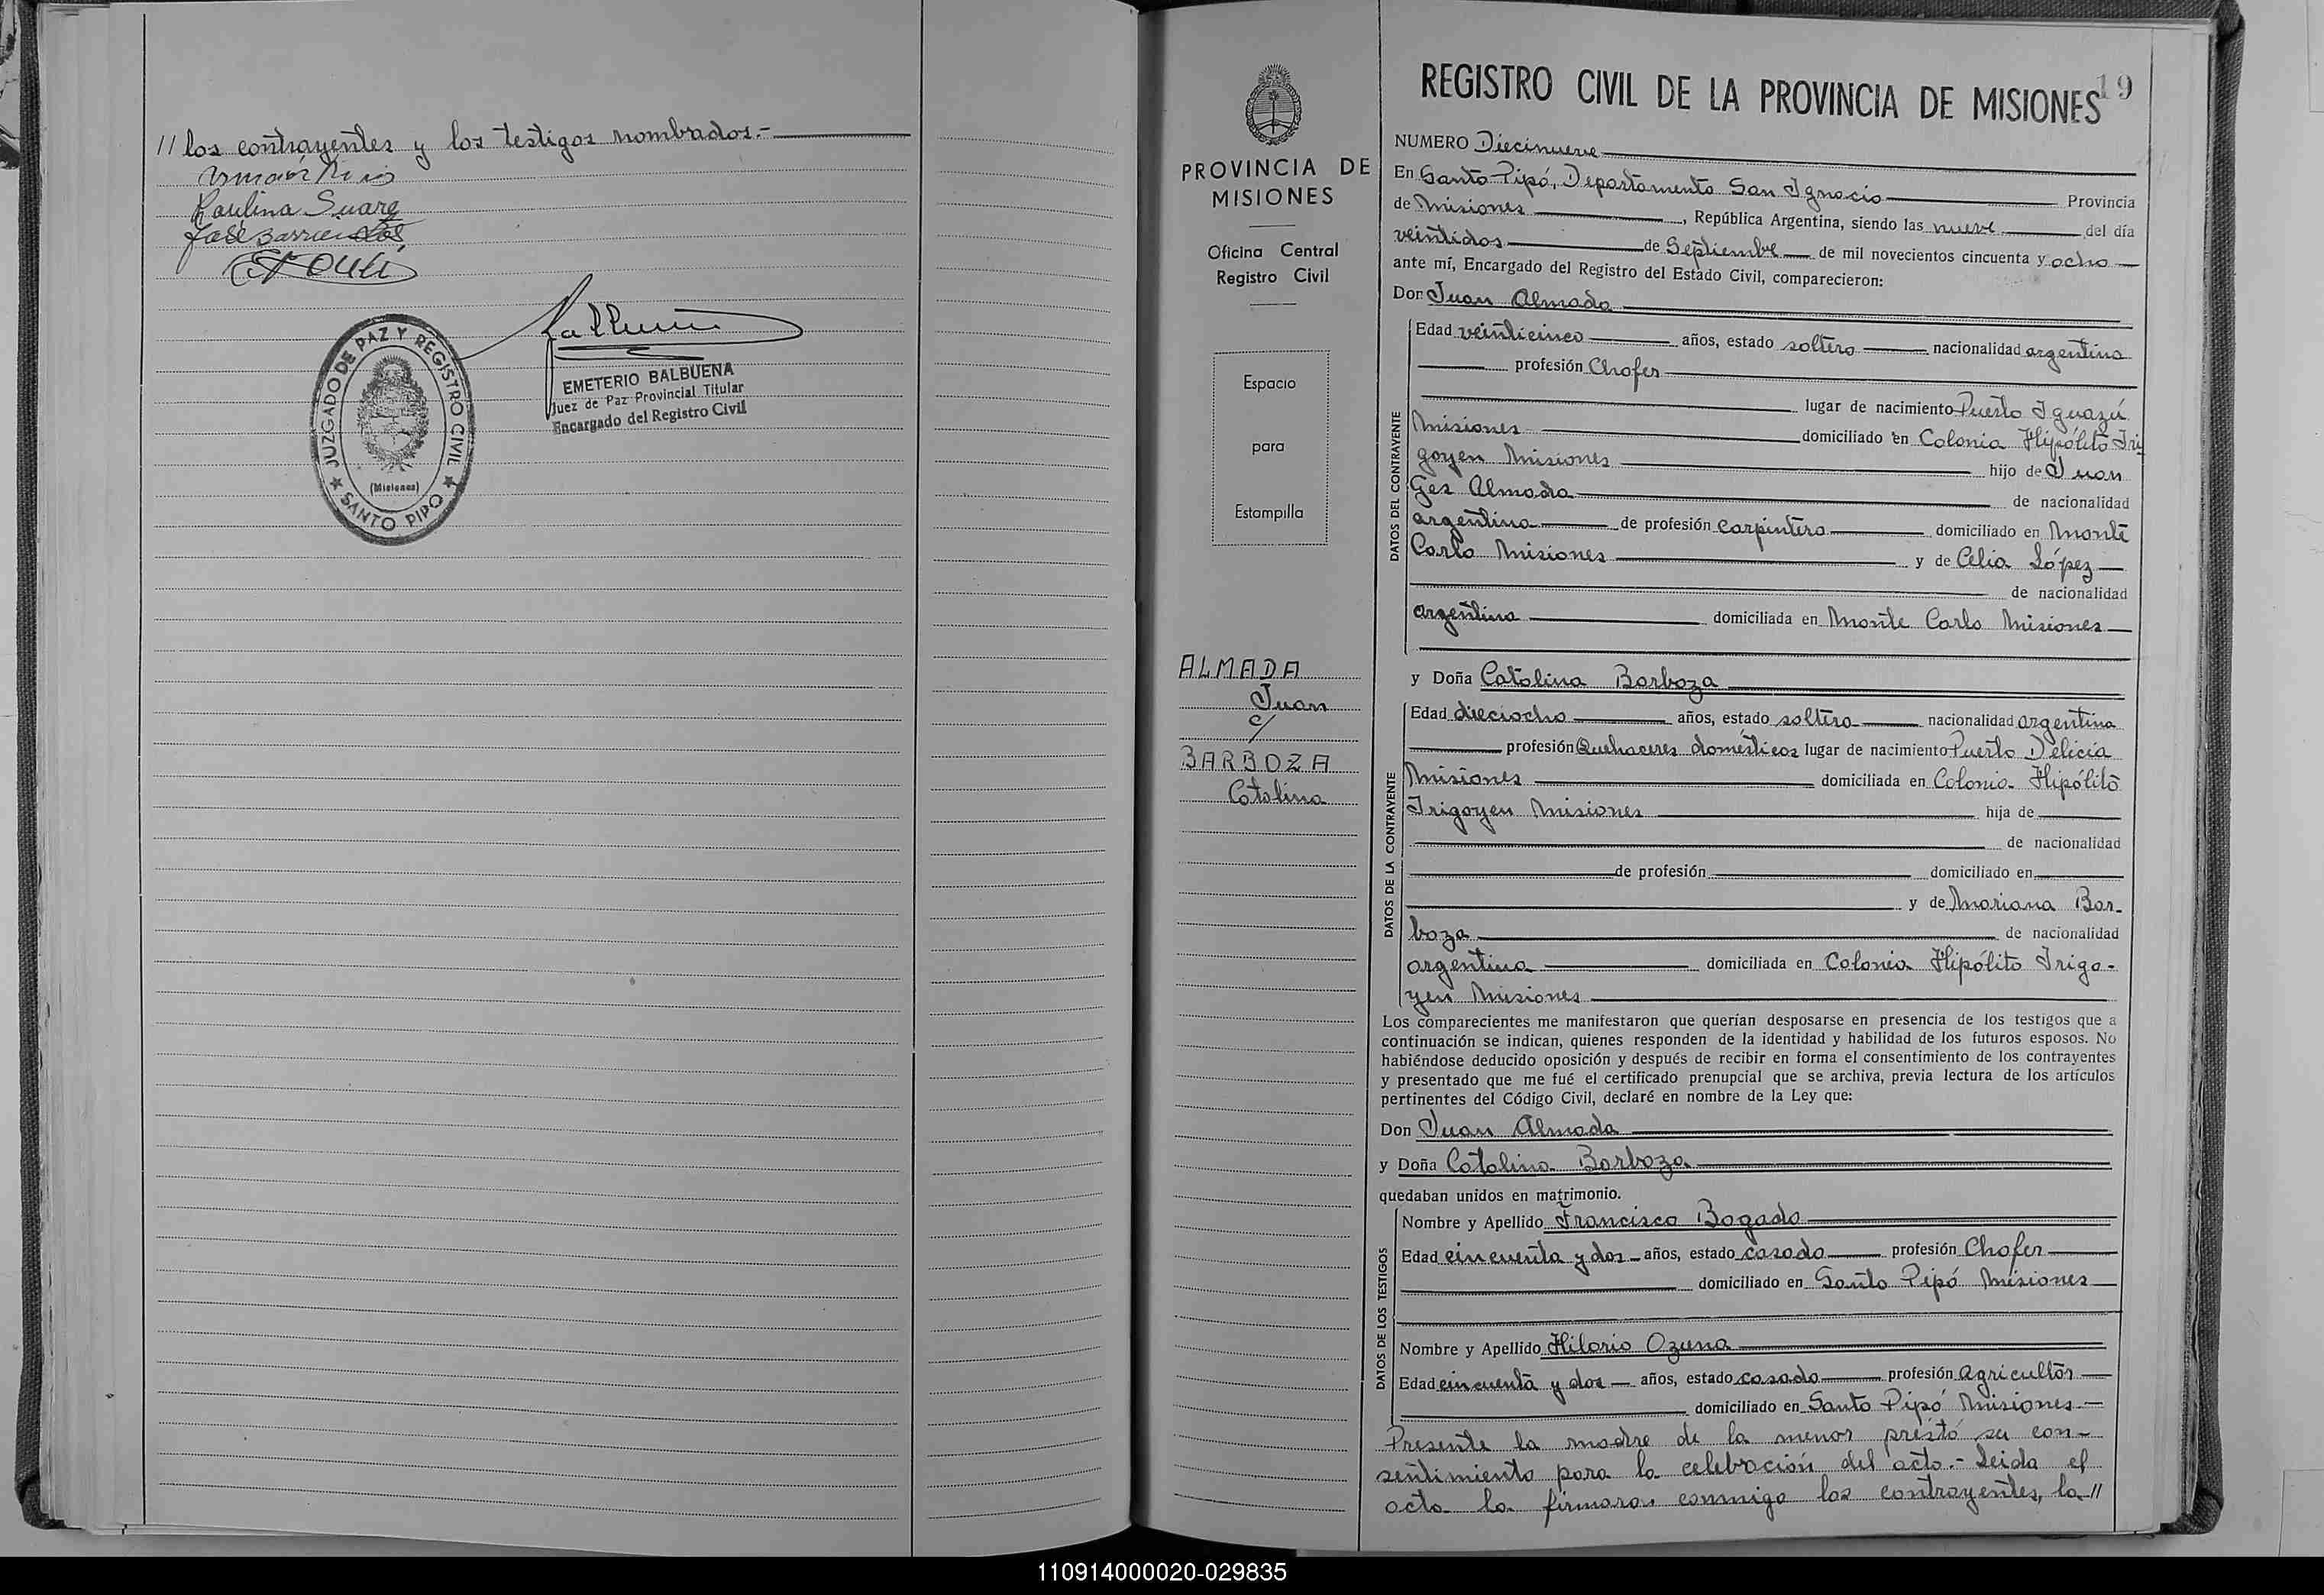 // los contrayentes y los testigos nombrados.-
Paulina Suarez
José Barrientos
JUZGADO DE PAZ Y REGISTRO CIVIL
(Misiones)
★ SANTO PIPO ★
EMETERIO BALBUENA
Juez de Paz Provincial Titular
Encargado del Registro Civil
PROVINCIA DE
MISIONES
Oficina Central
Registro Civil
Espacio
para
Estampilla
ALMADA
Juan
c/
BARBOZA
Catalina
REGISTRO CIVIL DE LA PROVINCIA DE MISIONES
19
NUMERO Diecinueve
En Santo Pipó, Departamento San Ignacio Provincia
de Misiones, República Argentina, siendo las nueve del día
veintidos de Septiembre de mil novecientos cincuenta y ocho
ante mí, Encargado del Registro del Estado Civil, comparecieron:
Don Juan Almada
DATOS DEL CONTRAYENTE
Edad veinticinco años, estado soltero nacionalidad argentina
profesión Chofer
lugar de nacimiento Puerto Iguazú
Misiones domiciliado en Colonia Hipólito Iri
goyen Misiones hijo de Juan
Ges Almada de nacionalidad
argentina de profesión carpintero domiciliado en Monte
Carlo Misiones y de Celia López
de nacionalidad
argentina domiciliada en Monte Carlo Misiones
y Doña Catalina Barboza
DATOS DE LA CONTRAYENTE
Edad dieciocho años, estado soltera nacionalidad argentina
profesión Quehaceres domésticos lugar de nacimiento Puerto Delicia
Misiones domiciliada en Colonia Hipólito
Irigoyen Misiones hija de
de nacionalidad
de profesión domiciliado en
y de Mariana Bar-
boza de nacionalidad
argentina domiciliada en Colonia Hipólito Irigo-
yen Misiones
Los comparecientes me manifestaron que querían desposarse en presencia de los testigos que a
continuación se indican, quienes responden de la identidad y habilidad de los futuros esposos. No
habiéndose deducido oposición y después de recibir en forma el consentimiento de los contrayentes
y presentado que me fué el certificado prenupcial que se archiva, previa lectura de los artículos
pertinentes del Código Civil, declaré en nombre de la Ley que:
Don Juan Almada
y Doña Catalina Barboza
quedaban unidos en matrimonio.
DATOS DE LOS TESTIGOS
Nombre y Apellido Francisco Bogado
Edad cincuenta y dos años, estado casado profesión Chofer
domiciliado en Santo Pipó Misiones
Nombre y Apellido Hilario Ozuna
Edad cincuenta y dos años, estado casado profesión agricultor
domiciliado en Santo Pipó Misiones
Presente la madre de la menor prestó su con-
sentimiento para la celebración del acto.- Leida el
acta la firmaron conmigo los contrayentes, la //
110914000020-029835